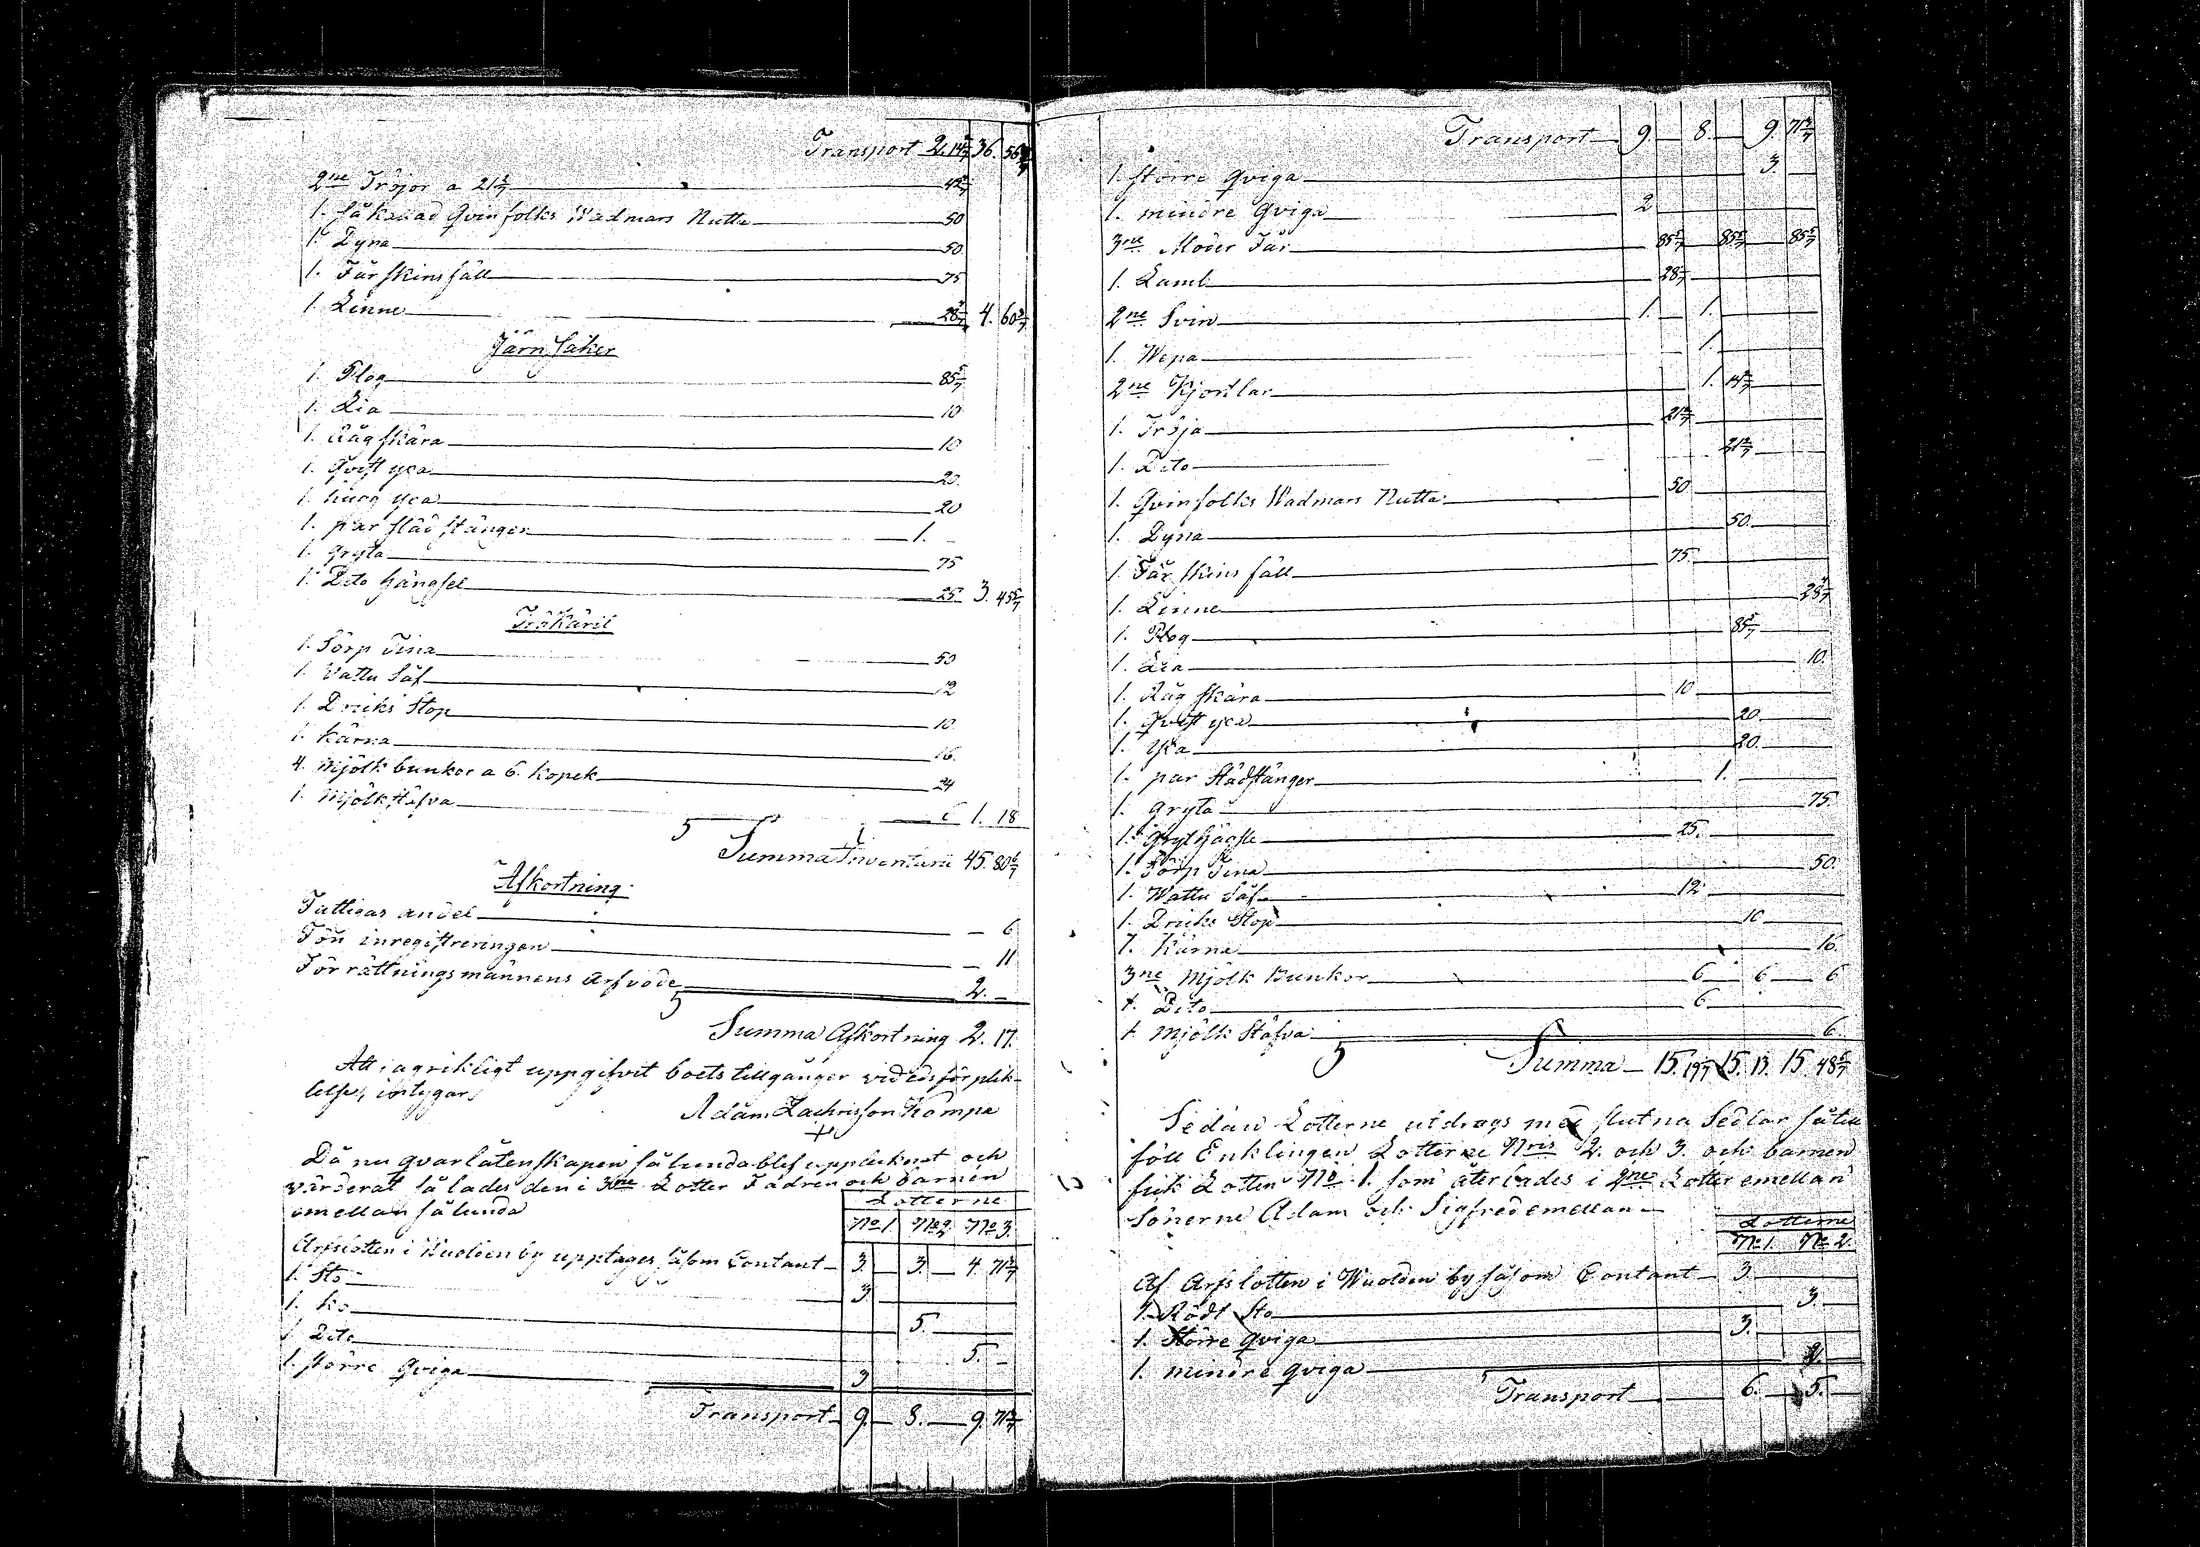 Transport 2. 14 2/7 36. 56
2ne Tröjor a 21 3/7 42 6/7
1. fåkallad Qvinfolks Wadmars Nutta 50
1. Dyna 50
1. Fårskinsfäll 75
1. Linne 28 4/7 4. 60 5/7
Järn Saker
1. Plog 85 5/7
1. Lia 10
1. Rågskära 10
1. Qvist yxa 20.
1. hugg yxa 20
1. par städ stänger 1. -
1. gryta 75
1. Dito hängsel 25 3. 45 5/7
Träkäril
1. Sörp Tina 50
1. Vattu Såf 12
1. Driks Stop 10
1. Kärna 16.
4. Mjölkbunkor a 6. Kopek 24
1. Mjölkstäfva 6 1. 18
Summa Inventarii 45. 80 6/7
Afkortning.
Fattigas andel - 6
För inregistreringen - 11
Förrättningsmännens Arfvode 2. -
Summa Afkortning 2. 17.
Att jag riktigt uppgifvit boets tillgångar vid edsförplik-
telse, intygar,
Adam Zachrisson Kämpe
+
Då nu qvarlåtenskapen sålunda blef uppteknat och
värderat så lades den i 3ne Lotter Fadren och barnen
emellan sålunda
Lotterne
No 1 No 2 No 3.
Arfslotten i Wuolden by upptages såsom Contant 3. 3. 4. 71 3/7
1. Sto 3.
1. Ko 5.
1. Dito 5. -
1. större Qviga 3
Transport 9. 8. 9. 71 3/7
Transport 9. 8. 9. 71 3/7
1. större Qviga 3.
1. mindre Qviga 2
3ne Moder Får 85 5/7 85 5/7 85 5/7
1. Lamb 28 4/7
2ne Svin 1. 1.
1. Wepa 1.
2ne Kjortlar 1. 14 2/7
1. Tröja 21 3/7
1. Dito 21 3/7
1. Qvinfolks Wadmars Nutta 50
1. Dyna 50.
1. Fårskins fäll 75.
1. Linne 28 4/7
1. Plog 85 5/7
1. Lia 10.
1. Råg skära 10
1. Qvist yxa 20
1. Yxa 20.
1. par Städstänger 1.
1. Gryta 75
1. Gryt 25.
1. Sörp Tina 50.
1. Wattu Såf 12
1. Driks Stop 10
1. Kärna 16.
3ne Mjölk Bunkor 6 6 6
1. Dito 6
1. Mjölk Stäfva 6.
Summa 15. 19 15. 13. 15. 48 5/7
Sedan Lotterne utdrags med slutna Sedlar såtu
föll Enklingen Lotterne Nris 2. och 3. och barnen
fick Lotten No 1. som återlades i 2ne Lotter emellan
Sönerne Adam och Sigfred emellan
Lotterne
No 1. No 2.
Af Arfslotten i Wuolden by såsom Contant 3.
1. Rödt Sto 3.
1. Större Qviga 3.
1. mindre qviga 2
Transport 6. 5.